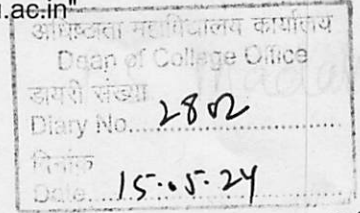 .ac.in"
अधिष्ठाता महाविद्यालय कार्यालय
Dean of College Office
डायरी संख्या
Diary No. 2802
दिनांक
Date 15.05.24